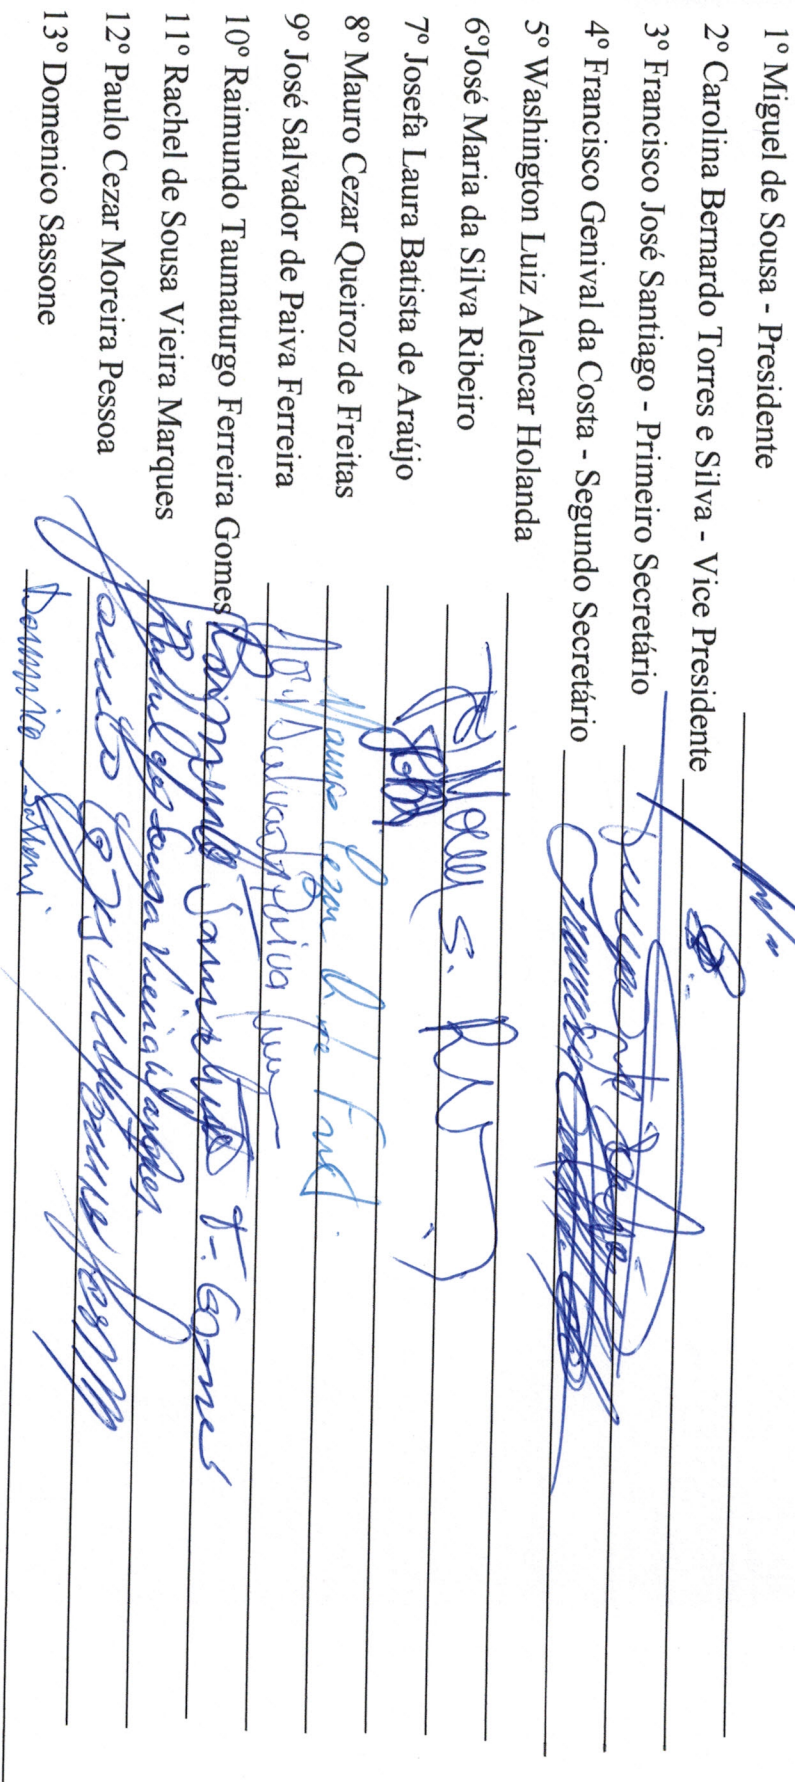 1º Miguel de Sousa - Presidente
2º Carolina Bernardo Torres e Silva - Vice Presidente
3º Francisco José Santiago - Primeiro Secretário
4º Francisco Genival da Costa - Segundo Secretário
5º Washington Luiz Alencar Holanda
6ºJosé Maria da Silva Ribeiro
7º Josefa Laura Batista de Araújo
8º Mauro Cezar Queiroz de Freitas Mauro Cezar Q. de
9º José Salvador de Paiva Ferreira José Salvador Paiva
10º Raimundo Taumaturgo Ferreira Gomes Raimundo F. Gomes
11º Rachel de Sousa Vieira Marques Rachel de Sousa Vieira Marques
12º Paulo Cezar Moreira Pessoa
13º Domenico Sassone Domenico Sassone